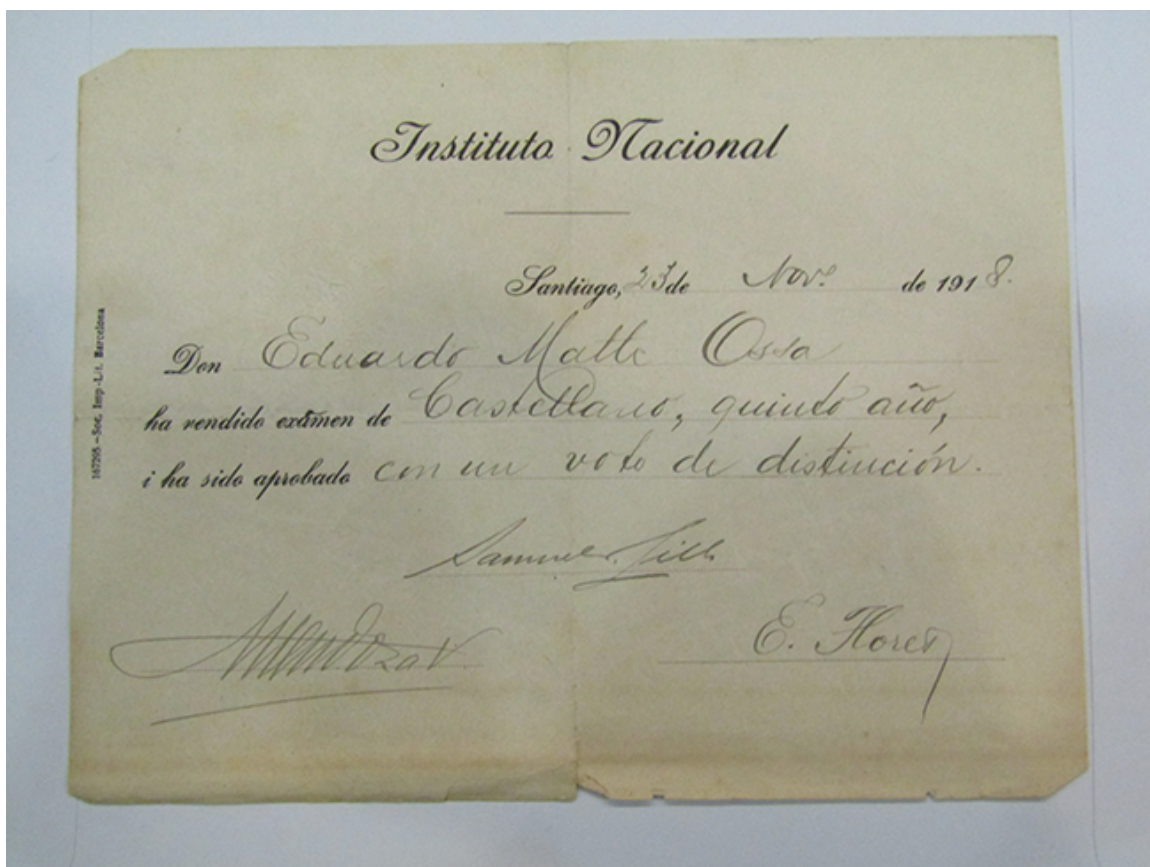 Instituto Nacional
Santiago, 23 de Nov. de 1918.
Don Eduardo Matte Ossa
ha rendido exámen de Castellano, quinto año,
i ha sido aprobado con un voto de distinción.
Samuel
Mendoza V.
E. Flores
167265.-Soc. Imp.-Lit. Barcelona